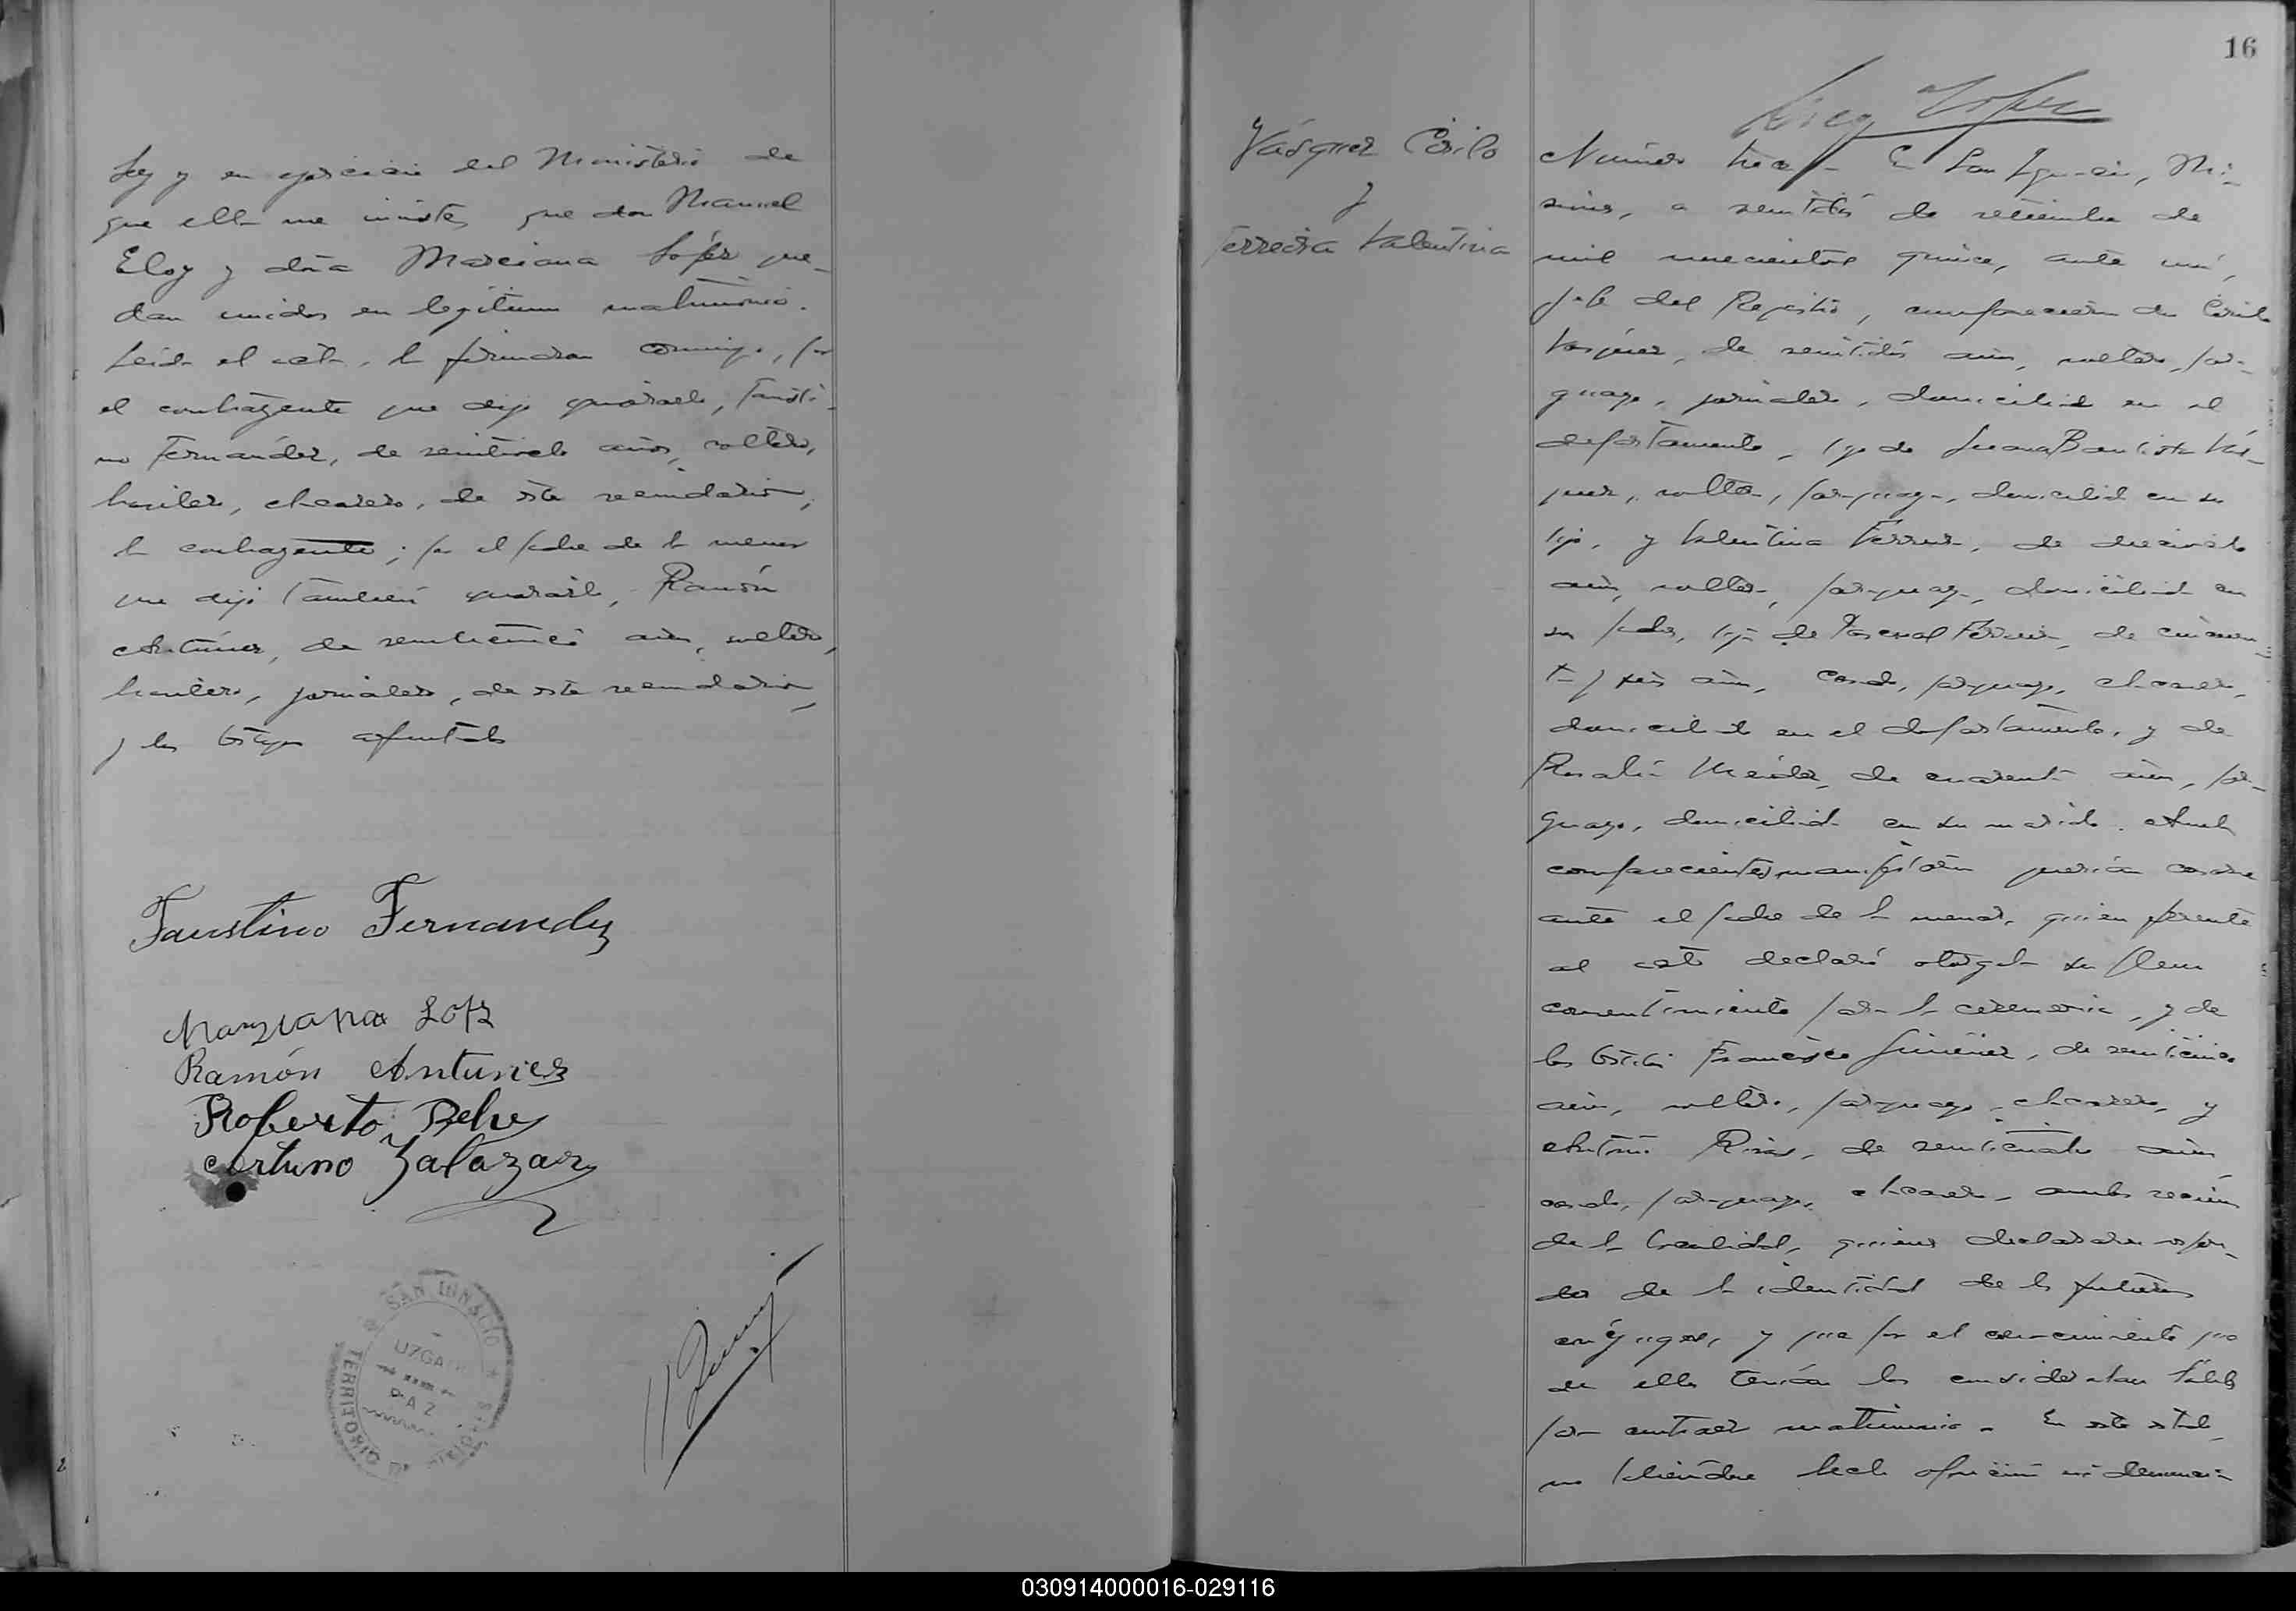 Ley y en ejercicio del Ministerio de
que ella me inviste, que don Manuel
Eloy y doña Marciana López que-
dan unidos en legítimo matrimonio.
Leida el acta, la firmaron conmigo, por
el contrayente que dijo ignorarlo, Fausti-
no Fernández, de veintisiete años, soltero,
brasilero, chacrero, de este vecindario;
la contrayente; por el padre de la menor
que dijo también ignorarlo, Ramón
Antúnez, de veinticinco años, soltero,
brasilero, jornalero, de este vecindario,
y los testigos apuntados
Faustino Fernandez
Marziana Lopz
Ramón Antunez
Roberto
Arturo Zalazar
SAN IGNACIO
UZGA
PAZ
TERRITORIO
16
Vásquez Cirilo
y
Ferreira Valentina
Número trece - En San Ignacio, Mi-
siones, a veintidós de setiembre de
mil novecientos quince, ante mí,
Jefe del Registro, comparecieron don Cirilo
Vásquez, de veintidós años, soltero, para-
guayo, jornalero, domiciliado en el
departamento, hijo de Juana Bautista Vás-
quez, soltera, paraguaya, domiciliada con su
hijo, y Valentina Ferreira, de diecisiete
años, soltera, paraguaya, domiciliada con
su padre, hija de Pascual Ferreira, de cincuen-
ta y seis años, casado, paraguayo, chacrero,
domiciliado en el departamento, y de
Rosalía Méndez, de cuarenta años, para-
guaya, domiciliada con su marido. Ambos
comparecientes manifestaron querían casarse
ante el padre de la menor, quien presente
al acto declaró otorgaba su pleno
consentimiento para la ceremonia, y de
los testigos Francisco Jiménez, de veinticinco
años, soltero, paraguayo, chacrero, y
Antonio Rivas, de veinticuatro años,
casado, paraguayo, chacrero, ambos vecinos
de la localidad, quienes declararon respon-
der de la identidad de los futuros
cónyuges, y que por el conocimiento que
de ellos tenían los consideraban hábiles
para contraer matrimonio. En este estado,
no habiéndose hecho oposición ni denuncia
030914000016-029116